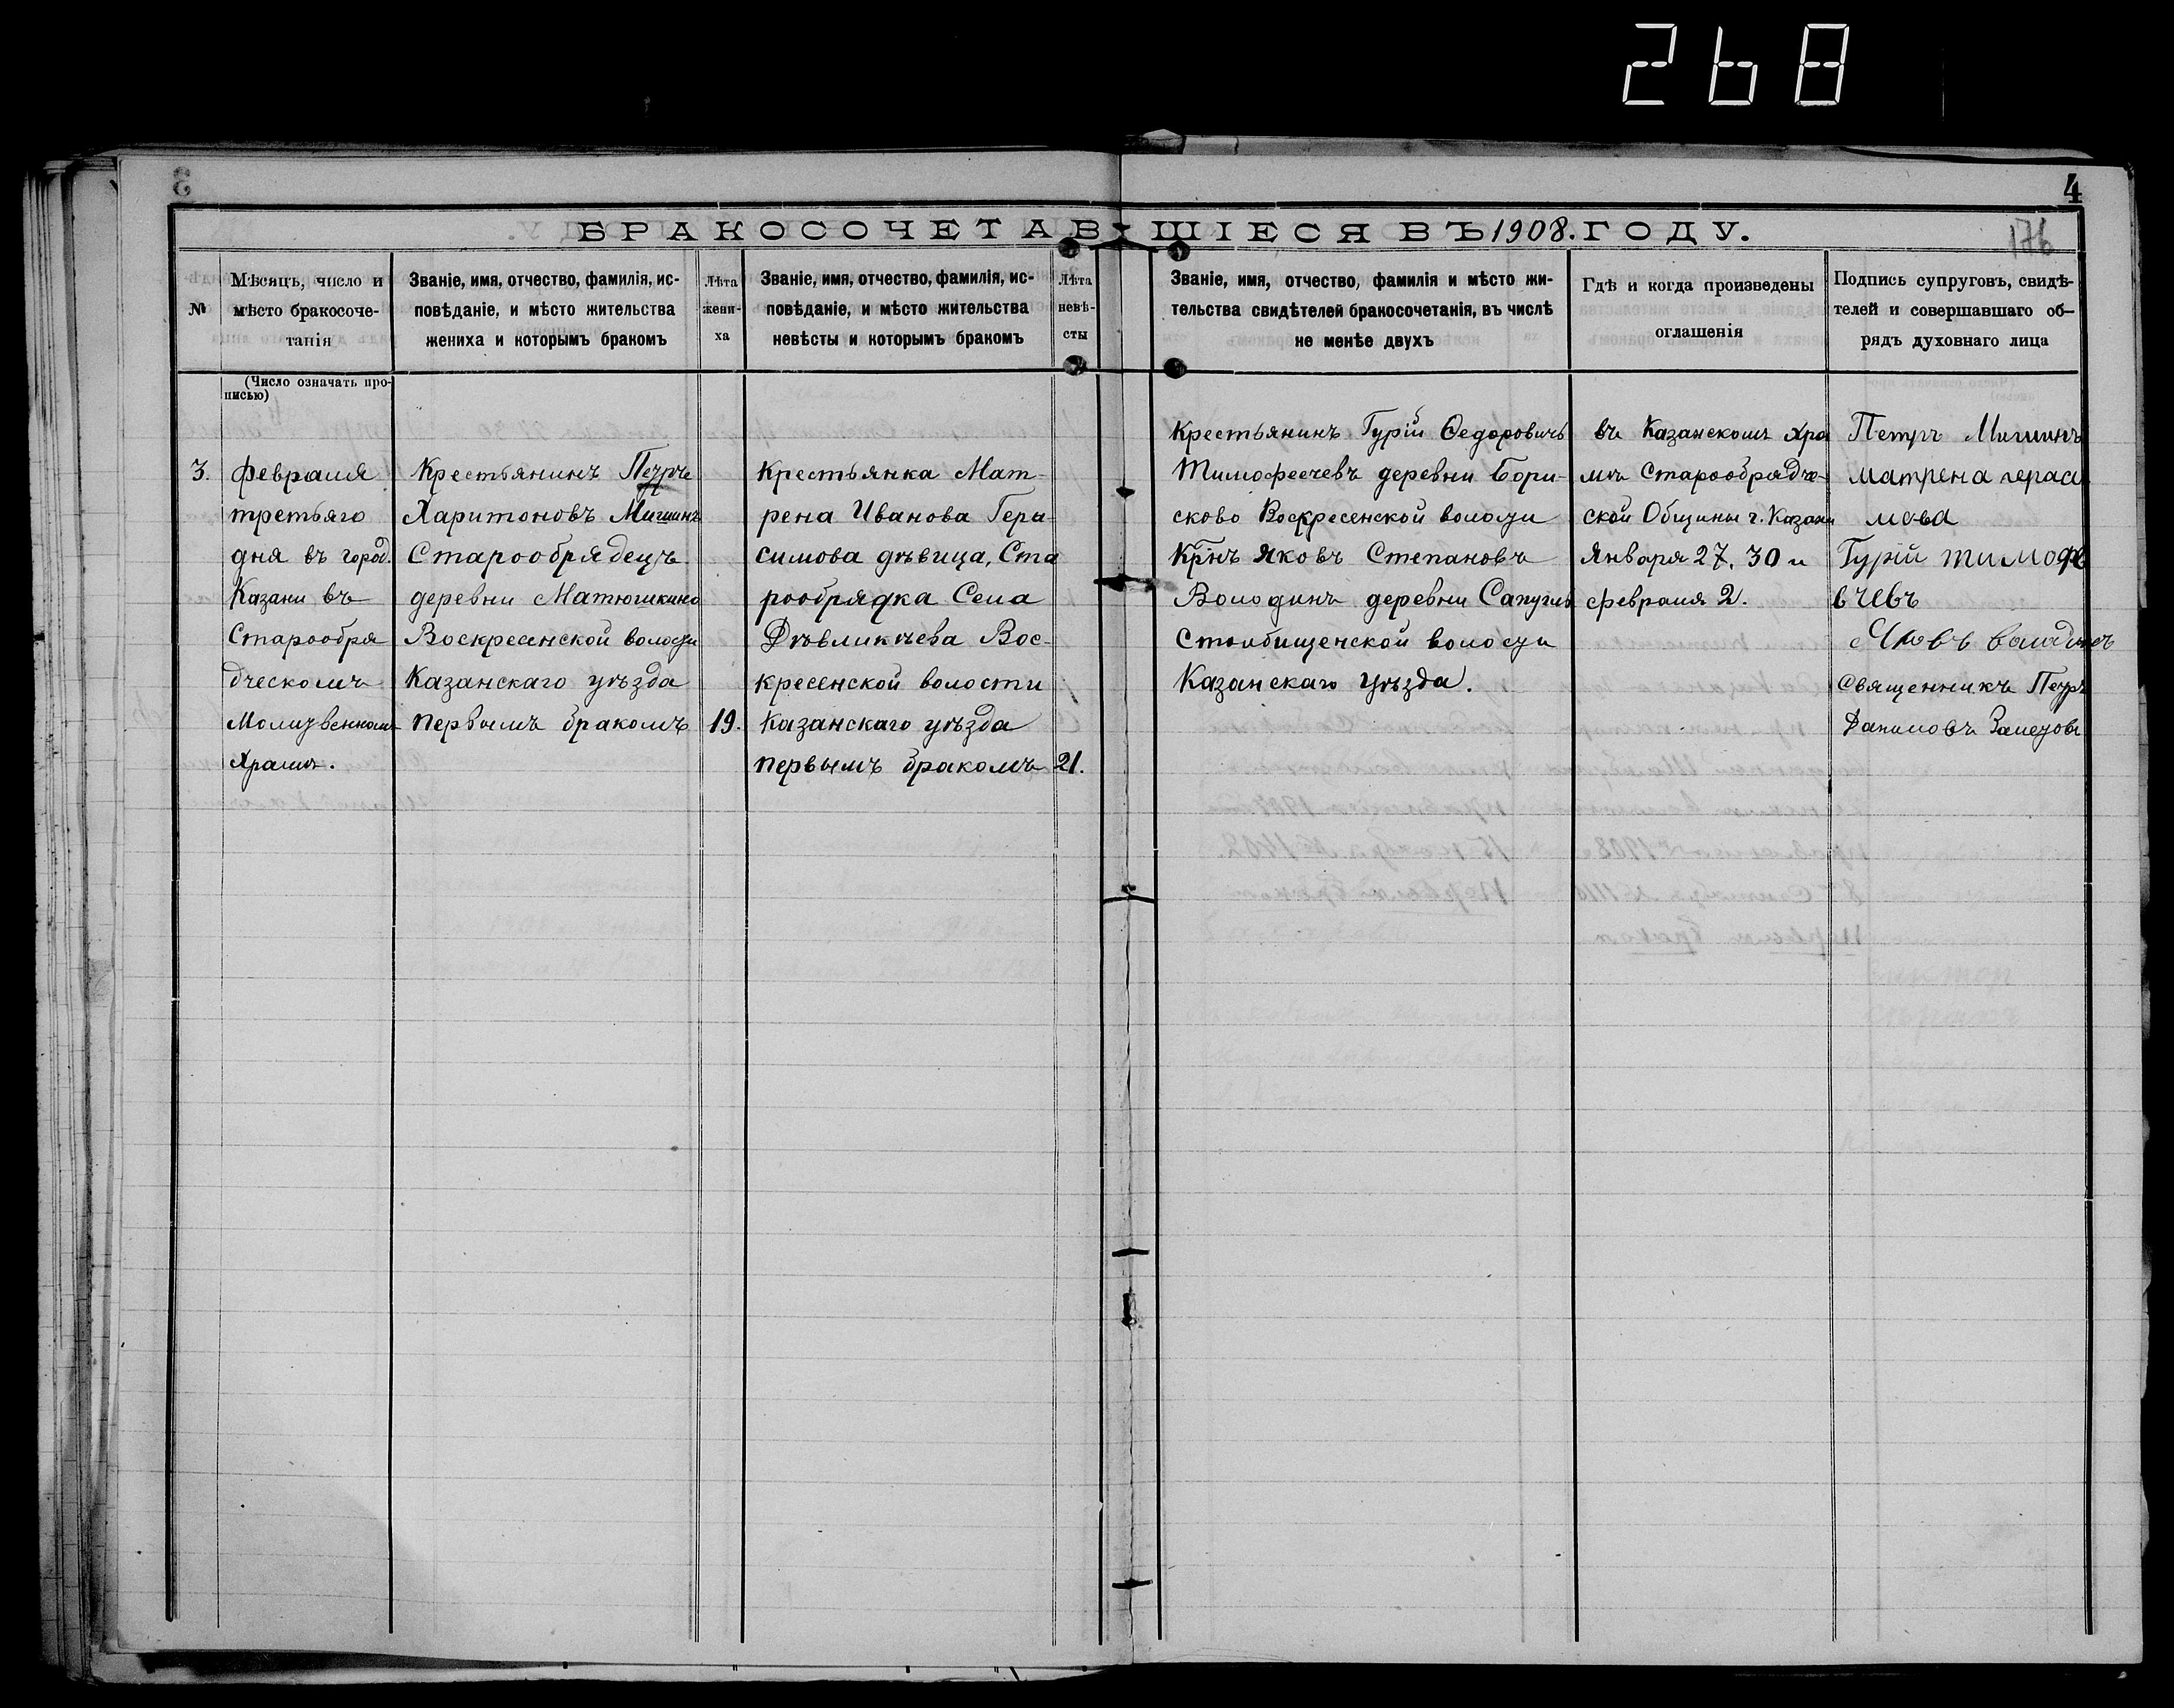 268
3
4
БРАКОСОЧЕТАВШІЕСЯ ВЪ 1908. ГОДУ.
176
№
Мѣсяцъ, число и
мѣсто бракосоче-
танія
Званіе, имя, отчество, фамилія, ис-
повѣданіе, и мѣсто жительства
жениха и которымъ бракомъ
Лѣта
жени-
ха
Званіе, имя, отчество, фамилія, ис-
повѣданіе, и мѣсто жительства
невѣсты и которымъ бракомъ
Лѣта
невѣ-
сты
Званіе, имя, отчество, фамилія и мѣсто жи-
тельства свидѣтелей бракосочетанія, въ числѣ
не менѣе двухъ
Гдѣ и когда произведены
оглашенія
Подпись супруговъ, свидѣ-
телей и совершавшаго об-
рядъ духовнаго лица
(Число означать про-
писью)
3.
Февраля
третьяго
дня въ город.
Казани въ
Старообря
дческомъ
Молитвенномъ
Храмѣ.
Крестьянинъ Петръ
Харитоновъ Мишинъ
Старообрядецъ
деревни Матюшкино
Воскресенской волости
Казанскаго уѣзда
первымъ бракомъ
19.
Крестьянка Мат-
рена Иванова Гера-
симова дѣвица, Ста
рообрядка Села
Дѣвликѣева Вос-
кресенской волости
Казанскаго уѣзда
первымъ бракомъ
21.
Крестьянинъ Гурій Ѳедоровичъ
Тимофеечевъ деревни Бори-
сково Воскресенской волости
Крнъ Яковъ Степановъ
Володинъ деревни Сапуголь
Столбищенской волости
Казанскаго Уѣзда.
въ Казанскомъ Хра
мѣ Старообрядче-
ской Общины г. Казани
Января 27, 30 и
февраля 2.
Петръ Мишинъ
Матрена гераси
мова
Гурій тимофѣ
ѣчевъ
Яковъ володинъ
Священникъ Петръ
Даниловъ Залетовъ